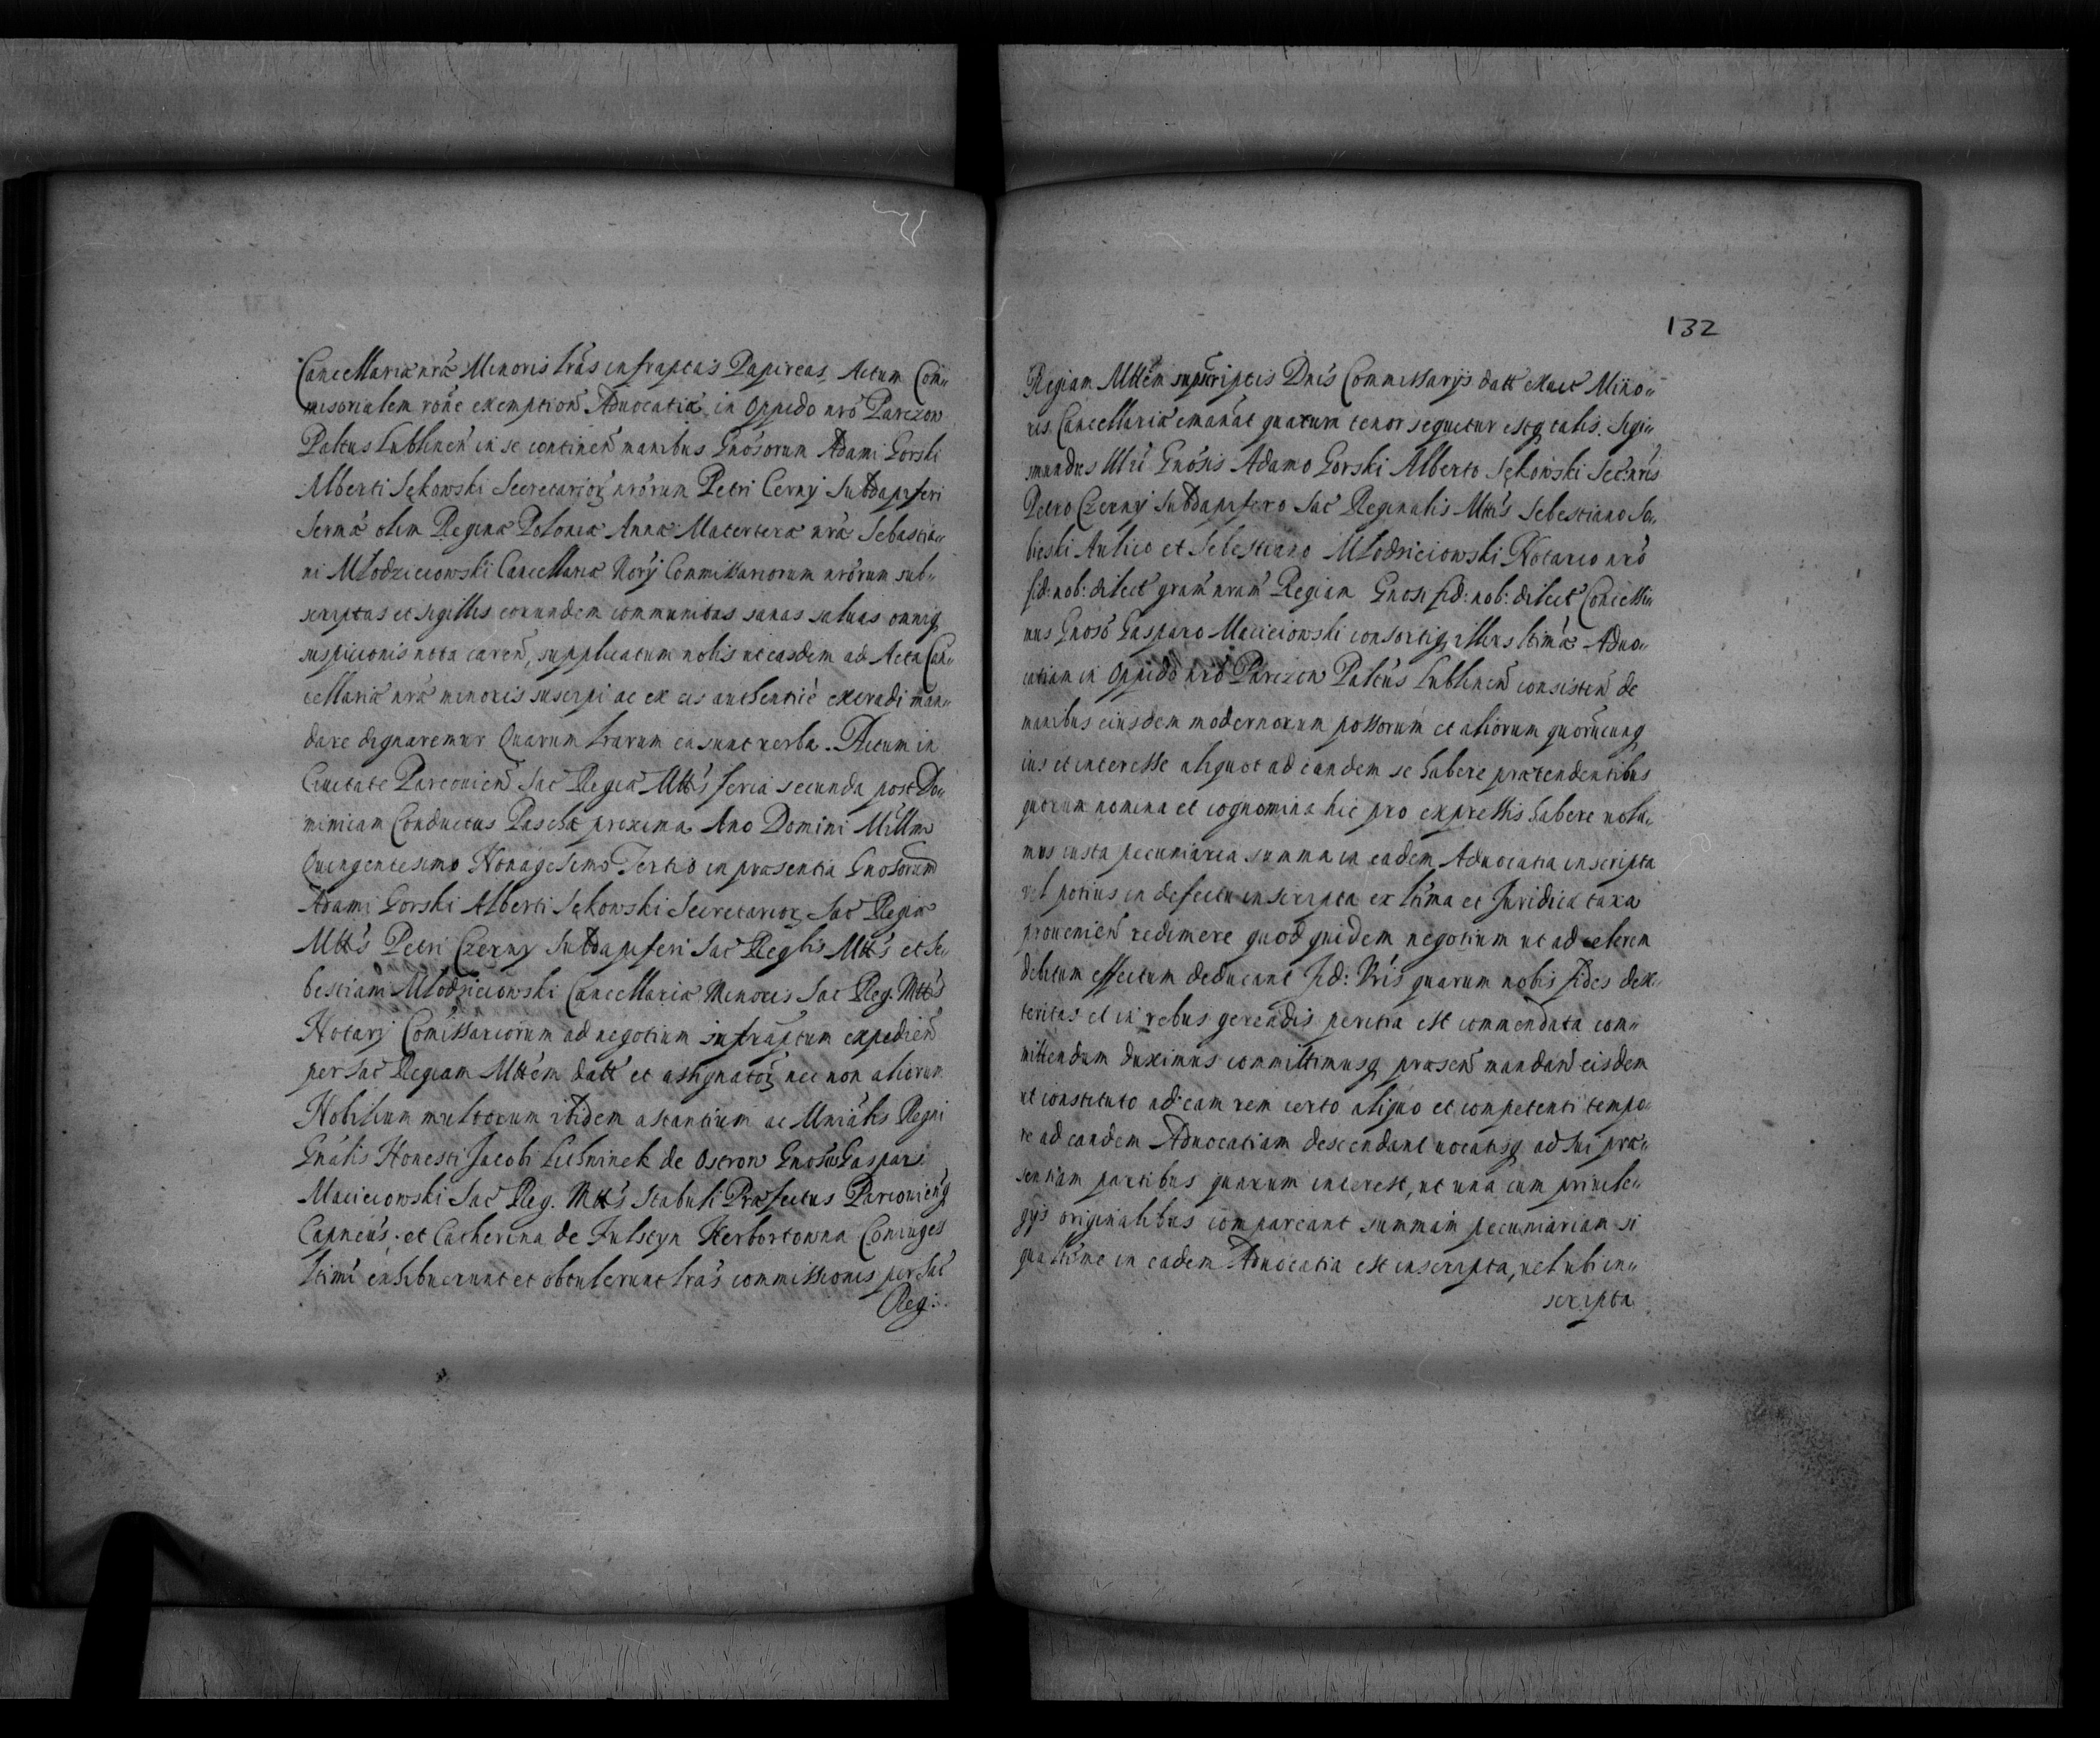 Cancellariæ nræ Minoris lras infraptas Papireas, Actum Com„
misorialem rone exemption Aduocatiæ in Oppido nro Parczow
Paltus Lublinen in se continen manibus Gnosorum Adami Gorski
Alberti Sękowski Secretarior nrorum Petri Cerny Subdapiferi
Sermæ olim Reginæ Poloniæ Annæ Materteræ nræ Sebastia„
ni Młodzieiowski Cancellariæ Norÿ Commissariorum nrorum sub„
scriptas et sigillis eorundem communitas sanas saluas omniq
suspicionis nota caren, supplicatum nobis ut easdem ad Acta Can„
cellariæ nræ minoris suscipi ac ex eis authentice extradi man„
dare dignaremur Quarum lrarum ea sunt uerba. Actum in
Ciuitate Parcouien Sac Regiæ Mttis feria secunda post Do„
minicam Conductus Paschæ proxima Ano Domini Millmo
Quingentesimo Nonagesimo Tertio in præsentia Gnosorum
Adami Gorski Alberti Sękowski Secretarior Sac Regiæ
Mttis Petri Czerny Subdapiferi Sac Reglis Mttis et Se„
bestiani Młodzieiowski Cancellariæ Minoris Sac Reg. Mttis
Notarÿ Comissariorum ad negotium infraptum expedien
per Sac Regiam Mttem datt et assignator nec non aliorum
Nobilium multorum ibidem astantium ac Mnialis Regni
Gnalis Honesti Jacobi de Ostrow Gnosus Gaspar
Macieiowski Sac Reg. Mttis Stabuli Præfectus Parcouienq
Capneus. et Catherina de Fulstyn Herbortowna Coniuges
ltimi exhibuerunt et obtulerunt lras commissionis per Sac
Reg:
132
Regiam Mttem supscriptis Dnis Commissarÿs datt exact Mino„
ris Cancellariæ emanat quarum tenor sequitur estq talis. Sigi„
smundus Gnosis Adamo Gorski Alberto Sękowski Secnris
Petro Czerny Subdapifero Sac Reginalis Mttis Sebestiano So„
bieski Aulico et Sebestiano Młodzieiowski Notario nro
fid: nob: dilect gram nram Regiam Gnosi fid: nob: dilect Concessi„
mus Gnoso Gasparo Macieiowski consortiq illius ltimæ Aduo„
catiam in Oppido nro Parczow Paltus Lublinen consisten de
manibus eiusdem modernorum possorum et aliorum quorucunq
ius et interesse aliquot ad eandem se habere prætendentibus
quorum nomina et cognomina hic pro expressis habere uolu„
mus iusta pecuniaria summa in eadem Aduocatia inscripta
vel potius in defectu inscripta ex ltima et Juridica taxa
prouenien redimere quod quidem negotium ut ad celerem
debitum effectum deducant fid: Vris quarum nobis fides dex„
teritas et in rebus gerendis peritia est commendata com„
mittendum duximus committimusq præsen mandan eisdem
ut constituto ad eam rem certo aliquo et competenti tempo„
re ad eandem Aduocatiam descendant uocatisq ad sui præ„
sentiam partibus quarum interest, ut una cum priuile„
gÿs originalibus compareant summam pecuniariam si
qua ltime in eadem Aduocatia est inscripta, uel ubi in„
scripta